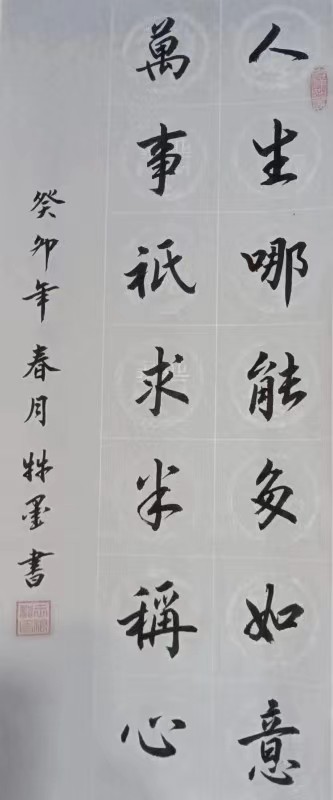 人生哪能多如意
萬事祇求半稱心
癸卯年春月墨書